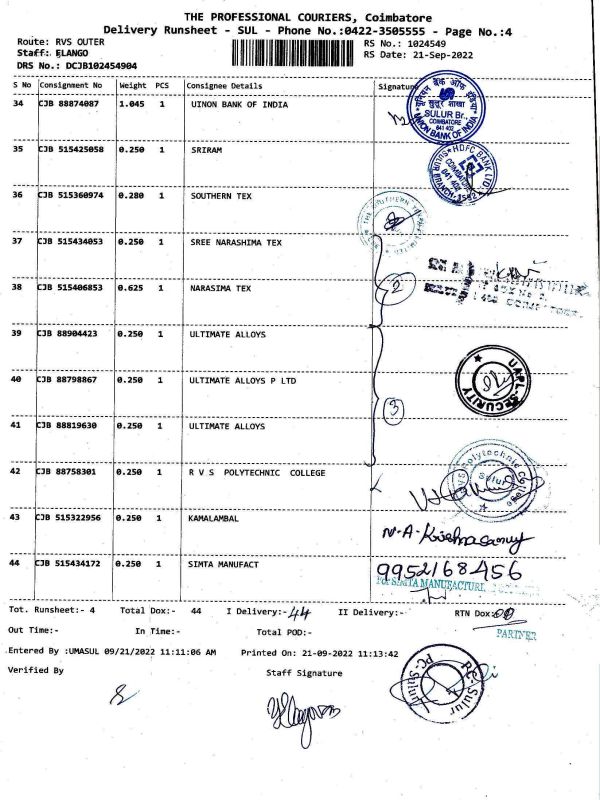 THE PROFESSIONAL COURIERS, Coimbatore
Delivery Runsheet - SUL - Phone No.:0422-3505555 - Page No.:4
Route: RVS OUTER
Staff: ELANGO
DRS No.: DCJB102454904
RS No.: 1024549
RS Date: 21-Sep-2022
S No Consignment No Weight PCS Consignee Details Signature
34 CJB 88874087 1.045 1 UINON BANK OF INDIA
SULUR Br.
COIMBATORE
641 402
UNION BANK OF INDIA
35 CJB 515425058 0.250 1 SRIRAM
HDFC BANK LTD
36 CJB 515360974 0.280 1 SOUTHERN TEX
37 CJB 515434053 0.250 1 SREE NARASHIMA TEX
38 CJB 515406853 0.625 1 NARASIMA TEX
2
39 CJB 88904423 0.250 1 ULTIMATE ALLOYS
40 CJB 88798867 0.250 1 ULTIMATE ALLOYS P LTD
UAPL-SECURITY
41 CJB 88819630 0.250 1 ULTIMATE ALLOYS
3
42 CJB 88758301 0.250 1 R V S POLYTECHNIC COLLEGE
RVS Polytechnic College
Sulur
43 CJB 515322956 0.250 1 KAMALAMBAL
N.A. Krishnasamy
44 CJB 515434172 0.250 1 SIMTA MANUFACT
9952168456
For SIMTA MANUFACTURI
Tot. Runsheet:- 4 Total Dox:- 44 I Delivery:- 44 II Delivery:- RTN Dox:- 00
PARTNER
Out Time:- In Time:- Total POD:-
Entered By :UMASUL 09/21/2022 11:11:06 AM Printed On: 21-09-2022 11:13:42
Verified By Staff Signature